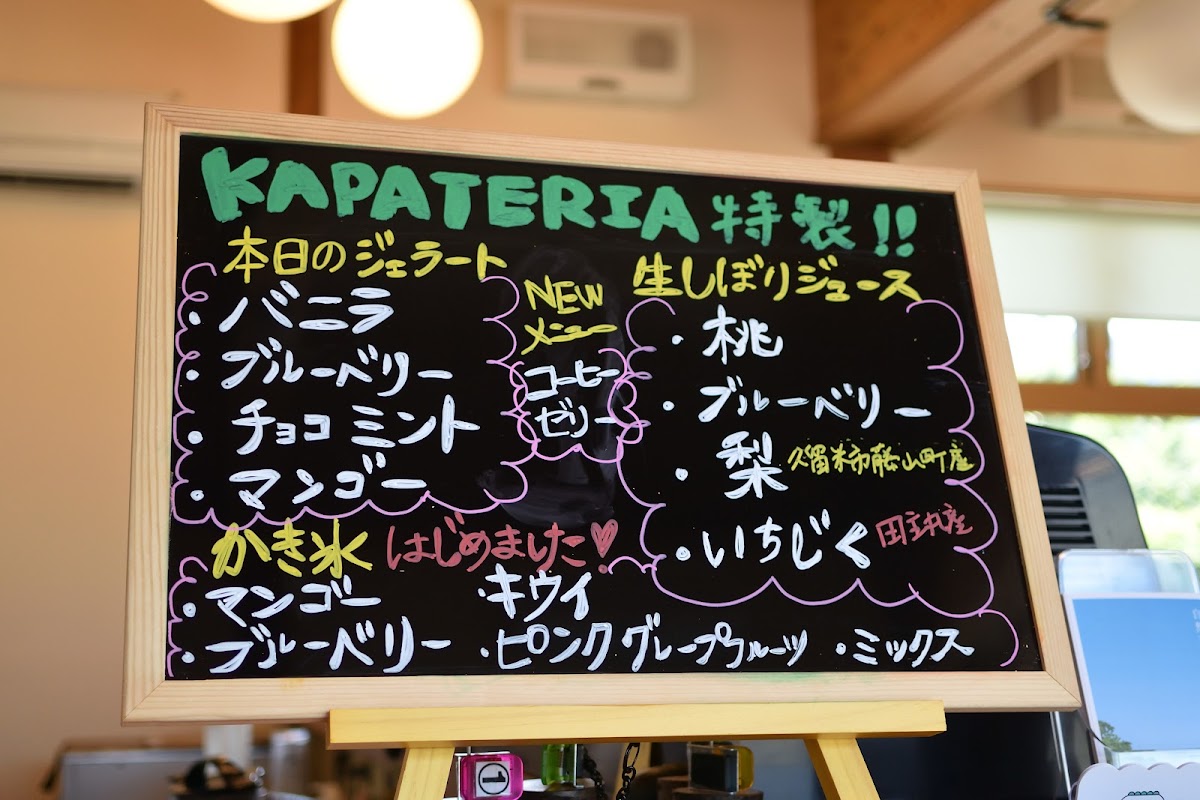 KAPATERIA 特製!!
本日のジェラート
・バニラ
・ブルーベリー
・チョコミント
・マンゴー
NEW
メニュー
コーヒー
ゼリー
生しぼりジュース
・桃
・ブルーベリー
・梨 久留米市藤山町産
・いちじく 田主丸産
かき氷 はじめました♡!
・マンゴー ・キウイ
・ブルーベリー ・ピンクグレープフルーツ ・ミックス
1